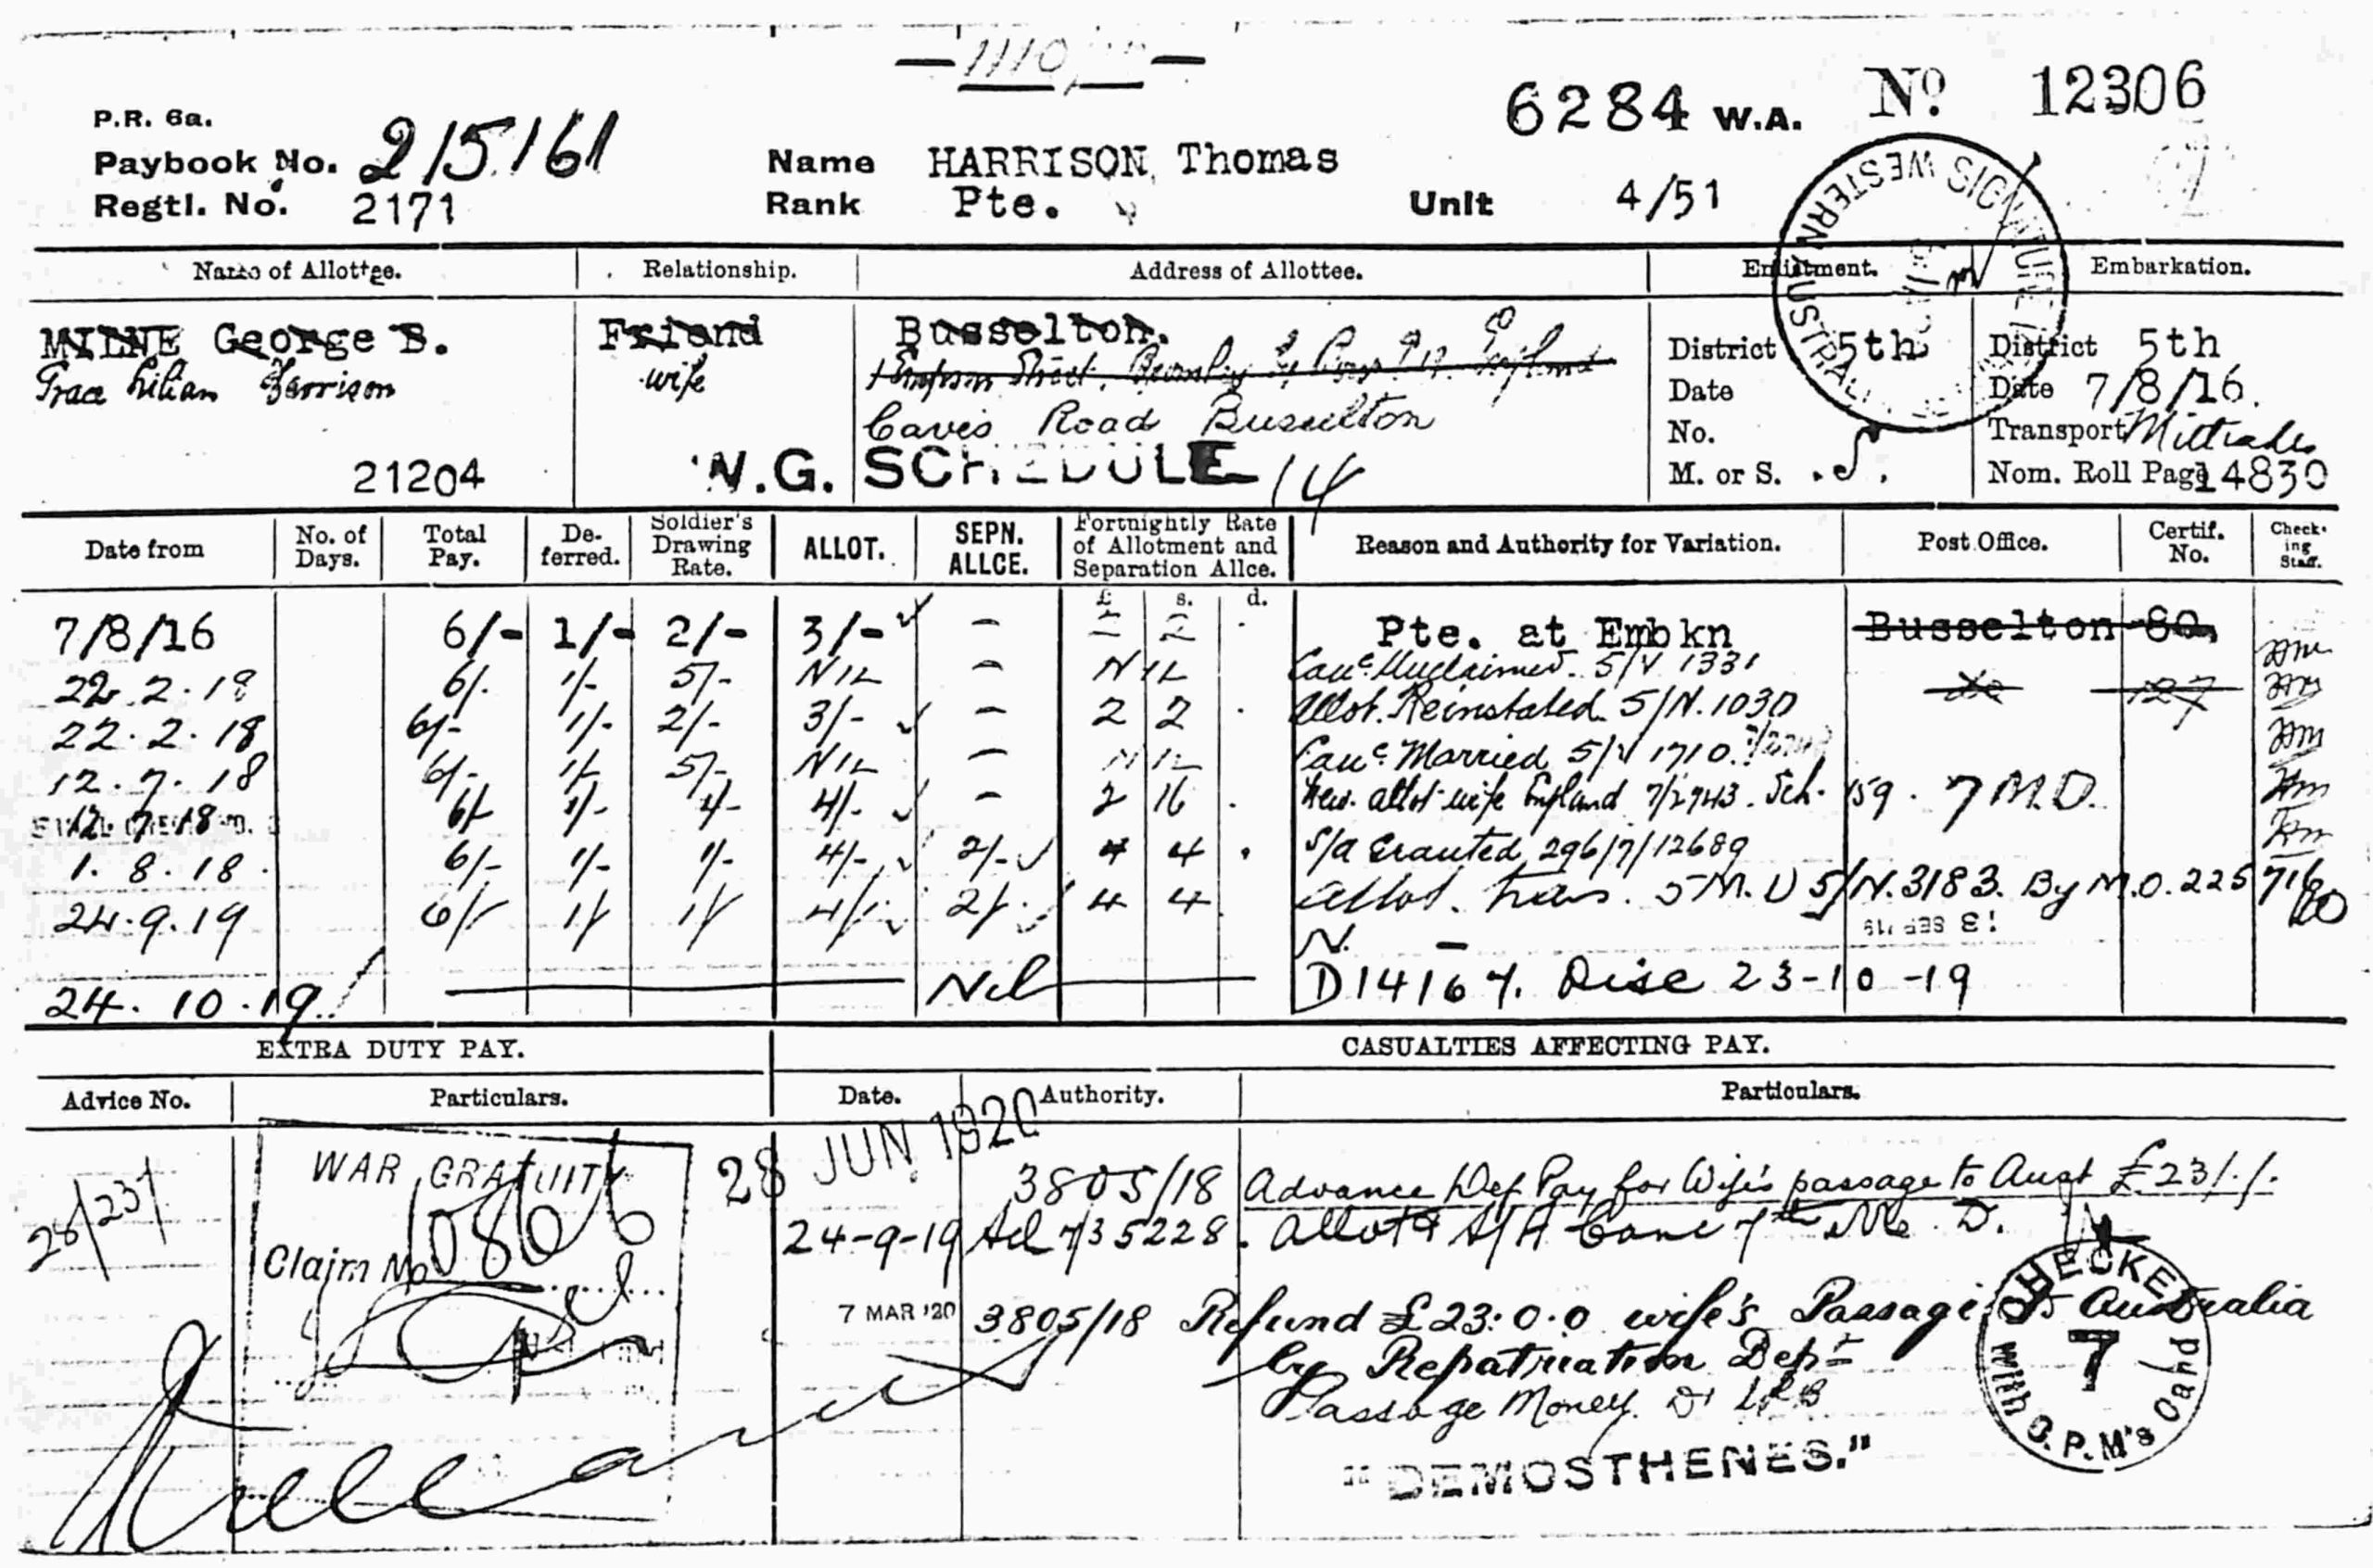 1110
6284 W.A. No. 12306
P.R. 6a.
Paybook No. 215161 Name HARRISON, Thomas
Regtl. No. 2171 Rank Pte. Unit 4/51
SIGNATURE WESTERN AUSTRALIA
Name of Allottee. Relationship. Address of Allottee. Enlistment. Embarkation.
MILNE George B. Friend Busselton.
Grace Lilian Harrison wife Street, England
Caves Road Busselton
District 5th District 5th
Date Date 7/8/16.
No. Transport Miltiades
M. or S. S. Nom. Roll Page 14830
21204 W.G. SCHEDULE 14
Date from No. of Days. Total Pay. Deferred. Soldier's Drawing Rate. ALLOT. SEPN. ALLCE. Fortnightly Rate of Allotment and Separation Allce. Reason and Authority for Variation. Post Office. Certif. No. Checking Staff.
£ s. d.
7/8/16 6/- 1/- 2/- 3/- - 2 2 Pte. at Embkn Busselton 80.
22.2.18 6/. 1/- 5/- NIL - NIL Canc Unclaimed. 5/V 1331 do 127
22.2.18 6/- 1/- 2/- 3/- - 2 2 . Allot. Reinstated. 5/N.1030
12.7.18 6/- 1/- 5/- NIL - NIL Canc Married 5/V 1710.
12.7.18 6/ 1/- 1/- 4/- - 2 16 . New allot wife England 7/2743. Sch. 159. 7 M.D.
1.8.18 6/- 1/- 1/- 4/- 2/- 4 4 . S/a Granted 296/7/12689
24.9.19 6/ 1/ 1/ 4/ 2/ 4 4 Allot. trans. 5 M.D 5/N.3183. By M.O. 225 716
N. - 13 SEP 119
24.10.19 Nil D14167. Disc 23-10-19
EXTRA DUTY PAY. CASUALTIES AFFECTING PAY.
Advice No. Particulars. Date. Authority. Particulars.
28 JUN 1920
26/231 WAR GRATUITY
Claim No 10866
3805/18 Advance Def Pay for Wife's passage to Aust £23/./.
24-9-19 Ad 7/35228. Allot & S/A Canc 7th M. D.
7 MAR '20 3805/18 Refund £23:0.0 wife's Passage to Australia
by Repatriation Dept
Passage Money.
"DEMOSTHENES."
CHECKED with D.P.M's Card
7